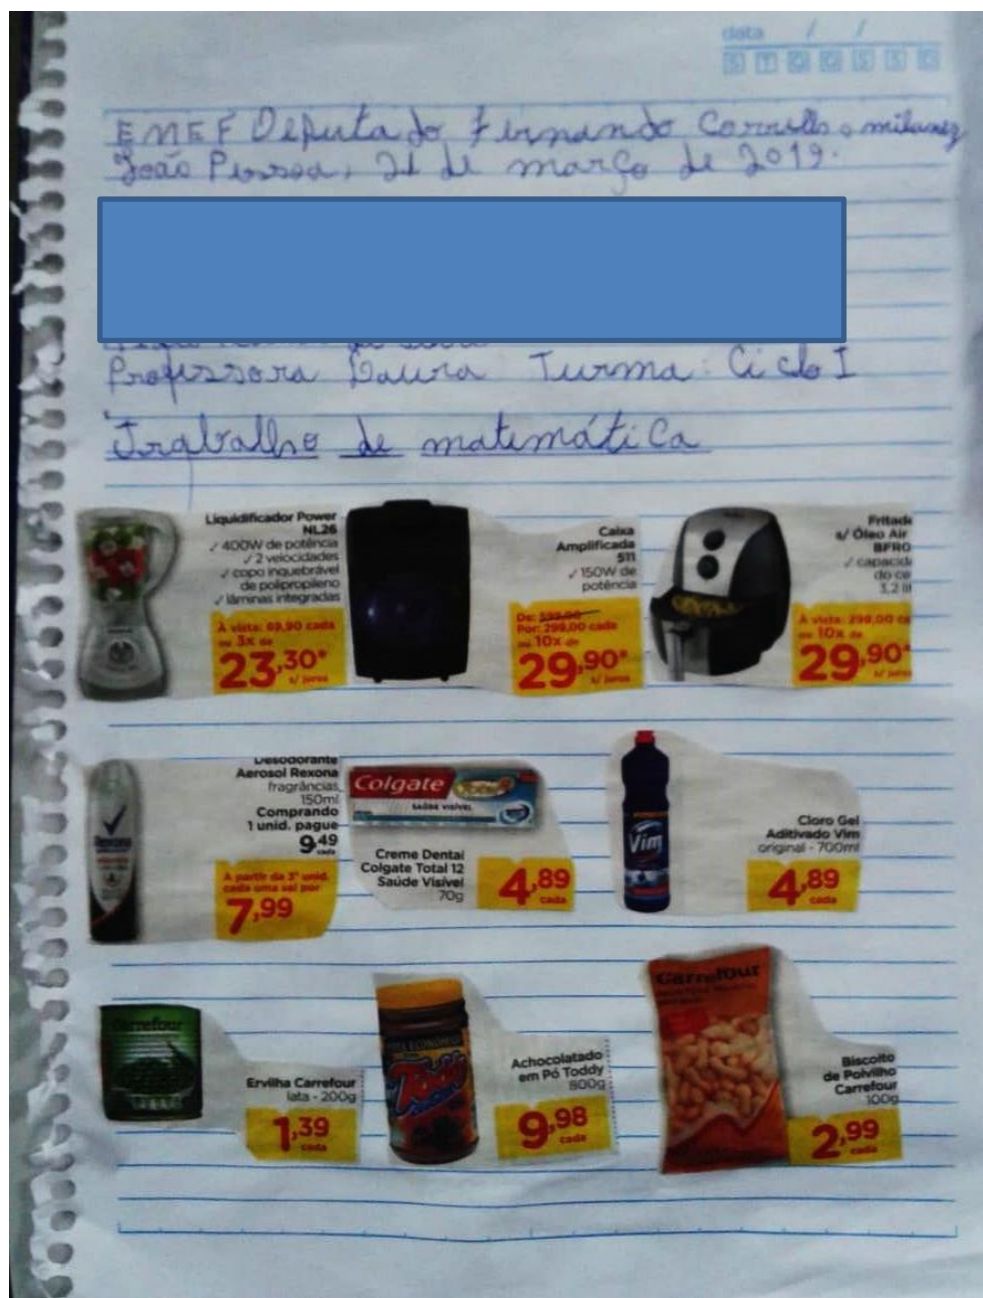 data / /
S T Q Q S S D
EMEF Deputado Fernando Carrilho milanez
João Pessoa, 21 de março de 2019.
Professora Laura Turma: Ciclo I
Trabalho de matemática
Liquidificador Power
NL26
✓ 400W de potência
✓ 2 velocidades
✓ copo inquebrável
de polipropileno
✓ lâminas integradas
À vista: 69,90 cada
ou 3x de
23,30*
s/ juros
Caixa
Amplificada
511
✓ 150W de
potência
De: 599,00
Por: 299,00 cada
ou 10x de
29,90*
s/ juros
Fritade
s/ Óleo Air
BFRO
✓ capacid
do ce
3,2 lit
À vista: 299,00 ca
ou 10x de
29,90*
s/ juros
Desodorante
Aerosol Rexona
fragrâncias,
150ml
Comprando
1 unid. pague
9,49
cada
A partir da 3ª unid.
cada uma sai por
7,99
Rexona
Colgate Total 12
SAÚDE VISÍVEL
Creme Dental
Colgate Total 12
Saúde Visível
70g
4,89
cada
Vim
Cloro Gel
Aditivado Vim
original - 700ml
4,89
cada
Carrefour
Ervilha Carrefour
lata - 200g
1,39
cada
ECONÔMICA
Toddy
Achocolatado
em Pó Toddy
800g
9,98
cada
Carrefour
Biscoito
de Polvilho
Carrefour
100g
2,99
cada